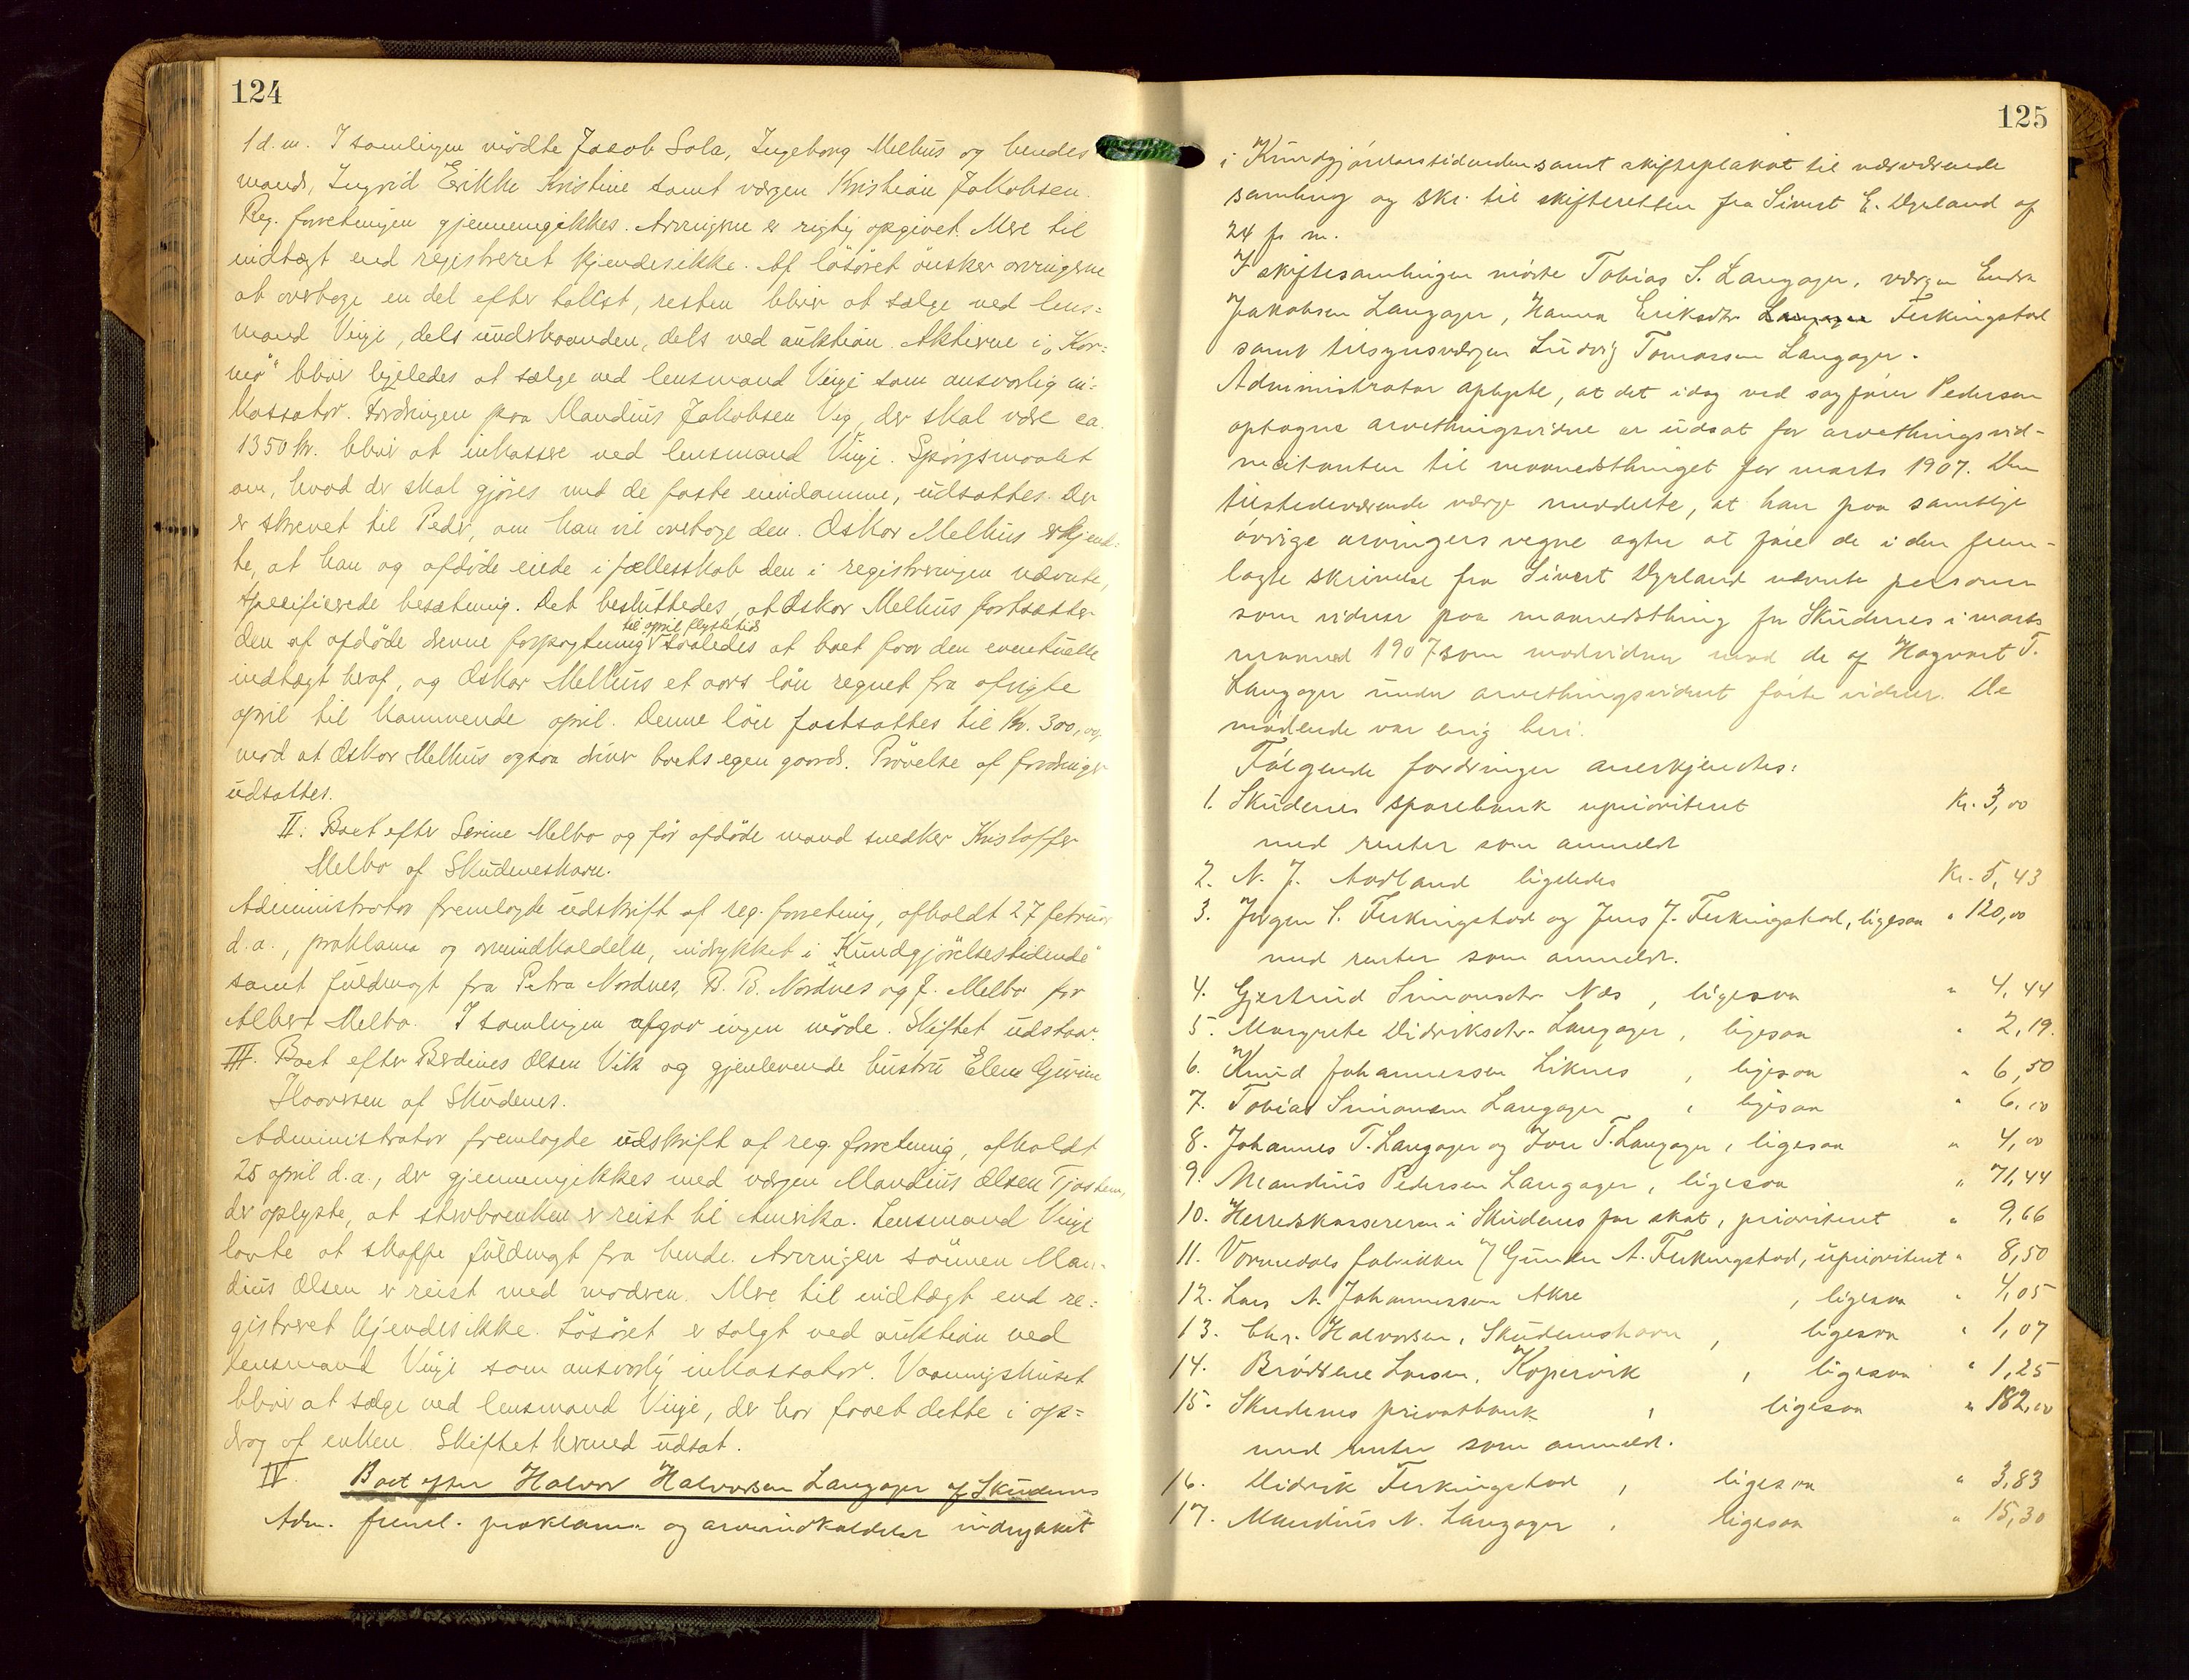 124
1 d. m. I samlingen mödte Jacob Sola, Ingeborg Melhus og hendes
mand, Ingrid Erikke Kristine samt værgen Kristian Jakobsen.
Reg. forretningen gjennemgikkes. Arvingerne er rigtig opgivet. Mere til
indtægt end registreret kjendes ikke. Af lösöret önsker arvingerne
at overtage en del efter takst, resten blir at sælge ved lens=
mand Vinje, dels underhaanden, dels ved auktion. Aktierne i „Kar=
mö" blir ligeledes at sælge ved lensmand Vinje som ansvarlig in=
kassator. Fordringen paa Mandius Jakobsen Veg, der skal være ca.
1350 kr. blir at inkassere ved lensmand Vinje. Spörgsmaalet
om, hvad der skal gjöres med de faste eiendomme, udsattes. Der
er skrevet til Peder, om han vil overtage den. Oskar Melhus erkjend=
te, at han og afdöde eiede i fællesskab den i registreringen nævnte,
spesifiserede besætning. Det besluttedes, at Oskar Melhus fortsætter
til april flyttetid
den af afdöde drevne forpagtning saaledes at boet faar den eventuelle
indtægt heraf, og Oskar Melhus et aars lön regnet fra afvigte
april til kommende april. Denne lön fastsattes til Kr. 300,00
mod at Oskar Melhus ogsaa driver boets egen gaard. Prövelse af fordringer
udsattes.
II. Boet efter Serine Melbo og för afdöde mand snedker Kristoffer
Melbo af Skudeneshavn.
Administrator fremlagde udskrift af reg. forretning, afholdt 27 februar
d. a., proklama og arveindkaldelse, indrykket i „Kundgjörelsestidende"
samt fuldmagt fra Petra Nordnes, B. B. Nordnes og J. Melbo for
Albert Melbo. I samlingen afgav ingen möde. Skiftet udstaar.
III. Boet efter Berdines Olsen Vik og gjenlevende hustru Elene Gurine
Haavrsen af Skudenes.
Administrator fremlagde udskrift af reg. forretning, afholdt
25 april d. a., der gjennemgikkes med værgen Mandius Olsen Tjøstem,
der oplyste, at sterboenken er reist til Amerika. Lensmand Vinje
lovte at skaffe fuldmagt fra hende. Arvingen sönnen Man=
dius Olsen er reist med modren. Mere til indtægt end re=
gistreret kjendes ikke. Lösöret er solgt ved auktion ved
lensmand Vinje som ansvarlig inkassator. Vaaningshuset
blir at sælge ved lensmand Vinje, der har faaet dette i op=
drag af enken. Skiftet hermed udsat.
IV. Boet efter Halvor Halvorsen Langager af Skudenes
Adm. freml. proklama og arveindkaldelse indrykket
125
i Kundgjörelsestidenden samt skifteplakat til nærværende
samling og skr. til skifteretten fra Sivert E. Dyrland af
24 f. m.
I skiftesamlingen mödte Tobias S. Langager, værgen Endre
Jakobsen Langager, Hanna Eriksdtr Langager Ferkingstad
samt tilsynsværgen Ludvig Tomassen Langager.
Administrator oplyste, at det idag ved sagförer Pedersen
optagne arvethingsvidne er udsat for arvethingsvid-
necitanten til maanedsthinget for marts 1907. Den
tilstedeværende værge meddelte, at han paa samtlige
övrige arvingers vegne agter at före de i den frem-
lagte skrivelse fra Sivert Dyrland nævnte personer
som vidner paa maanedsthing for Skudenes i marts
maaned 1907 som modvidner mod de af Hagvart T.
Langager under arvethingsvidnet förte vidner. De
mödende var enig heri.
Fölgende fordringer anerkjendtes:
1. Skudenes sparebank uprioriteret Kr. 3,00
med renter som anmeldt
2. N. J. Aadland ligeledes Kr. 5,43
3. Jörgen S. Ferkingstad og Jens J. Ferkingstad, ligesaa " 120,00
med renter som anmeldt.
4. Gjertrud Simonsdtr. Næs, ligesaa " 4,44
5. Margrete Didriksdtr. Langager, ligesaa " 2,19.
6. Knud Johannessen Liknes, ligesaa " 6,50
7. Tobias Simonsen Langager, ligesaa " 6,00
8. Johannes T. Langager og Iver T. Langager, ligesaa " 4,00
9. Mandius Pedersen Langager, ligesaa " 71,44
10. Herredskassereren i Skudenes for skat, prioriteret " 9,66
11. Vormedals fabrikker v/ Gunder A. Ferkingstad, uprioriteret " 8,50
12. Lars N. Johannessen Akre, ligesaa " 4,05
13. Chr. Halvorsen, Skudeneshavn, ligesaa " 1,07
14. Brödrene Larsen, Kopervik, ligesaa " 1,25
15. Skudenes privatbank, ligesaa " 182,00
med renter som anmeldt.
16. Didrik Ferkingstad, ligesaa " 3,83
17. Mandius N. Langager, ligesaa " 15,30